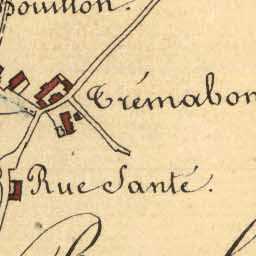 Pouillon.
Trémabon
Rue Santé.